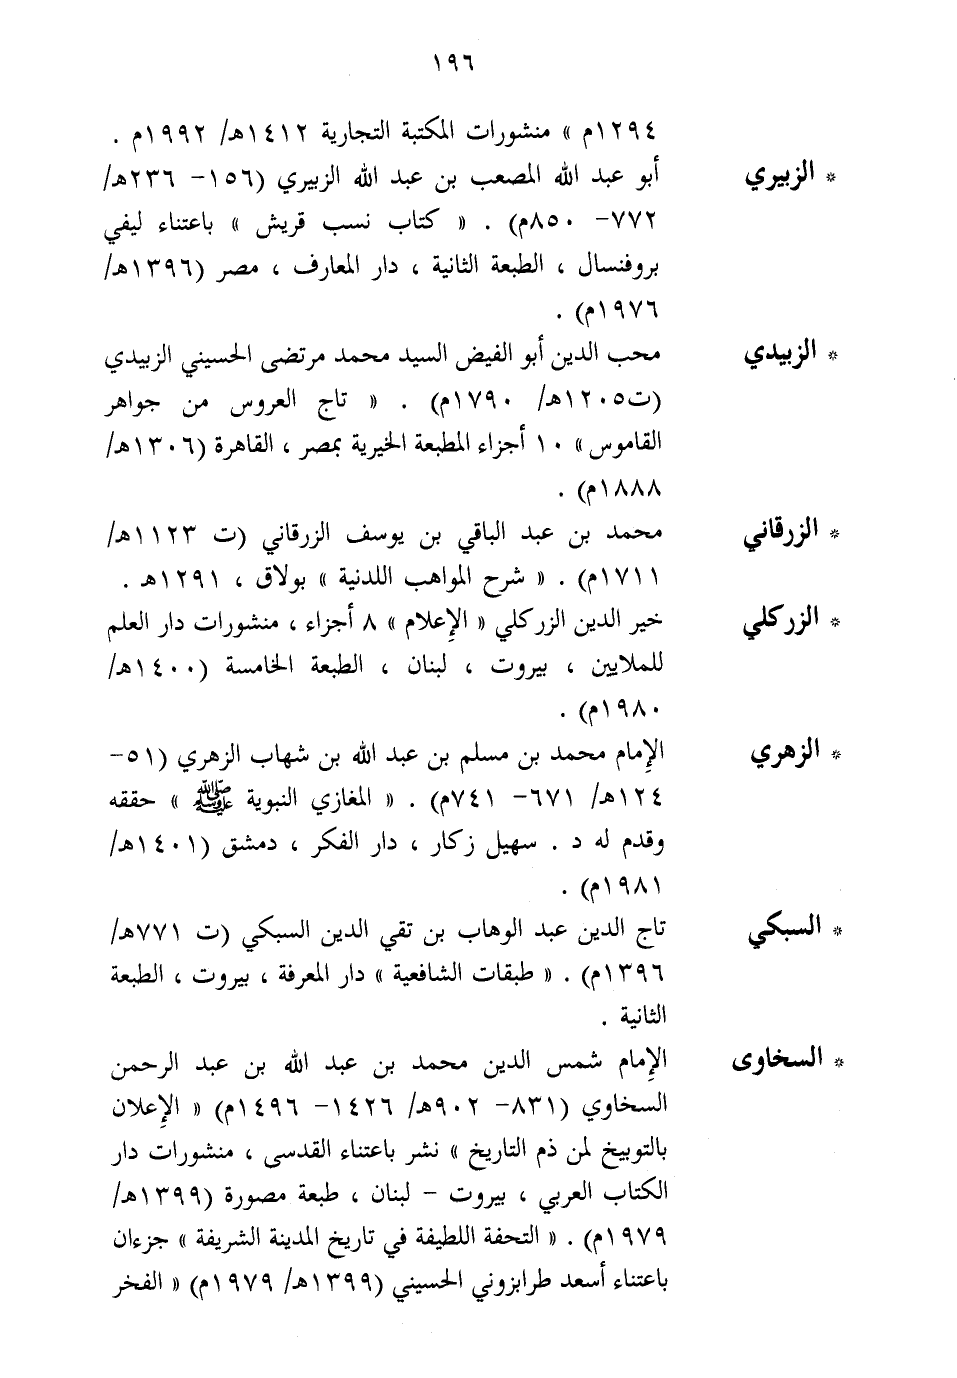 ١٩٦
١٢٩٤م » منشورات المكتبة التجارية ١٤١٢هـ/ ١٩٩٢م .
* الزبيري أبو عبد الله المصعب بن عبد الله الزبيري (١٥٦- ٢٣٦هـ/
٧٧٢- ٨٥٠م) . « كتاب نسب قريش » باعتناء ليفي
بروفنسال ، الطبعة الثانية ، دار المعارف ، مصر (١٣٩٦هـ/
١٩٧٦م) .
* الزبيدي محب الدين أبو الفيض السيد محمد مرتضى الحسيني الزبيدي
(ت١٢٠٥هـ/ ١٧٩٠م) . « تاج العروس من جواهر
القاموس » ١٠ أجزاء المطبعة الخيرية بمصر ، القاهرة (١٣٠٦هـ/
١٨٨٨م) .
* الزرقاني محمد بن عبد الباقي بن يوسف الزرقاني (ت ١١٢٣هـ/
١٧١١م) . « شرح المواهب اللدنية » بولاق ، ١٢٩١هـ .
* الزركلي خير الدين الزركلي « الإعلام » ٨ أجزاء ، منشورات دار العلم
للملايين ، بيروت ، لبنان ، الطبعة الخامسة (١٤٠٠هـ/
١٩٨٠م) .
* الزهري الإمام محمد بن مسلم بن عبد الله بن شهاب الزهري (٥١-
١٢٤هـ/ ٦٧١- ٧٤١م) . « المغازي النبوية ﷺ » حققه
وقدم له د . سهيل زكار ، دار الفكر ، دمشق (١٤٠١هـ/
١٩٨١م) .
* السبكي تاج الدين عبد الوهاب بن تقي الدين السبكي (ت ٧٧١هـ/
١٣٩٦م) . « طبقات الشافعية » دار المعرفة ، بيروت ، الطبعة
الثانية .
* السخاوى الإمام شمس الدين محمد بن عبد الله بن عبد الرحمن
السخاوي (٨٣١- ٩٠٢هـ/ ١٤٢٦- ١٤٩٦م) « الإعلان
بالتوبيخ لمن ذم التاريخ » نشر باعتناء القدسى ، منشورات دار
الكتاب العربي ، بيروت - لبنان ، طبعة مصورة (١٣٩٩هـ/
١٩٧٩م) . « التحفة اللطيفة في تاريخ المدينة الشريفة » جزءان
باعتناء أسعد طرابزوني الحسيني (١٣٩٩هـ/ ١٩٧٩م) « الفخر